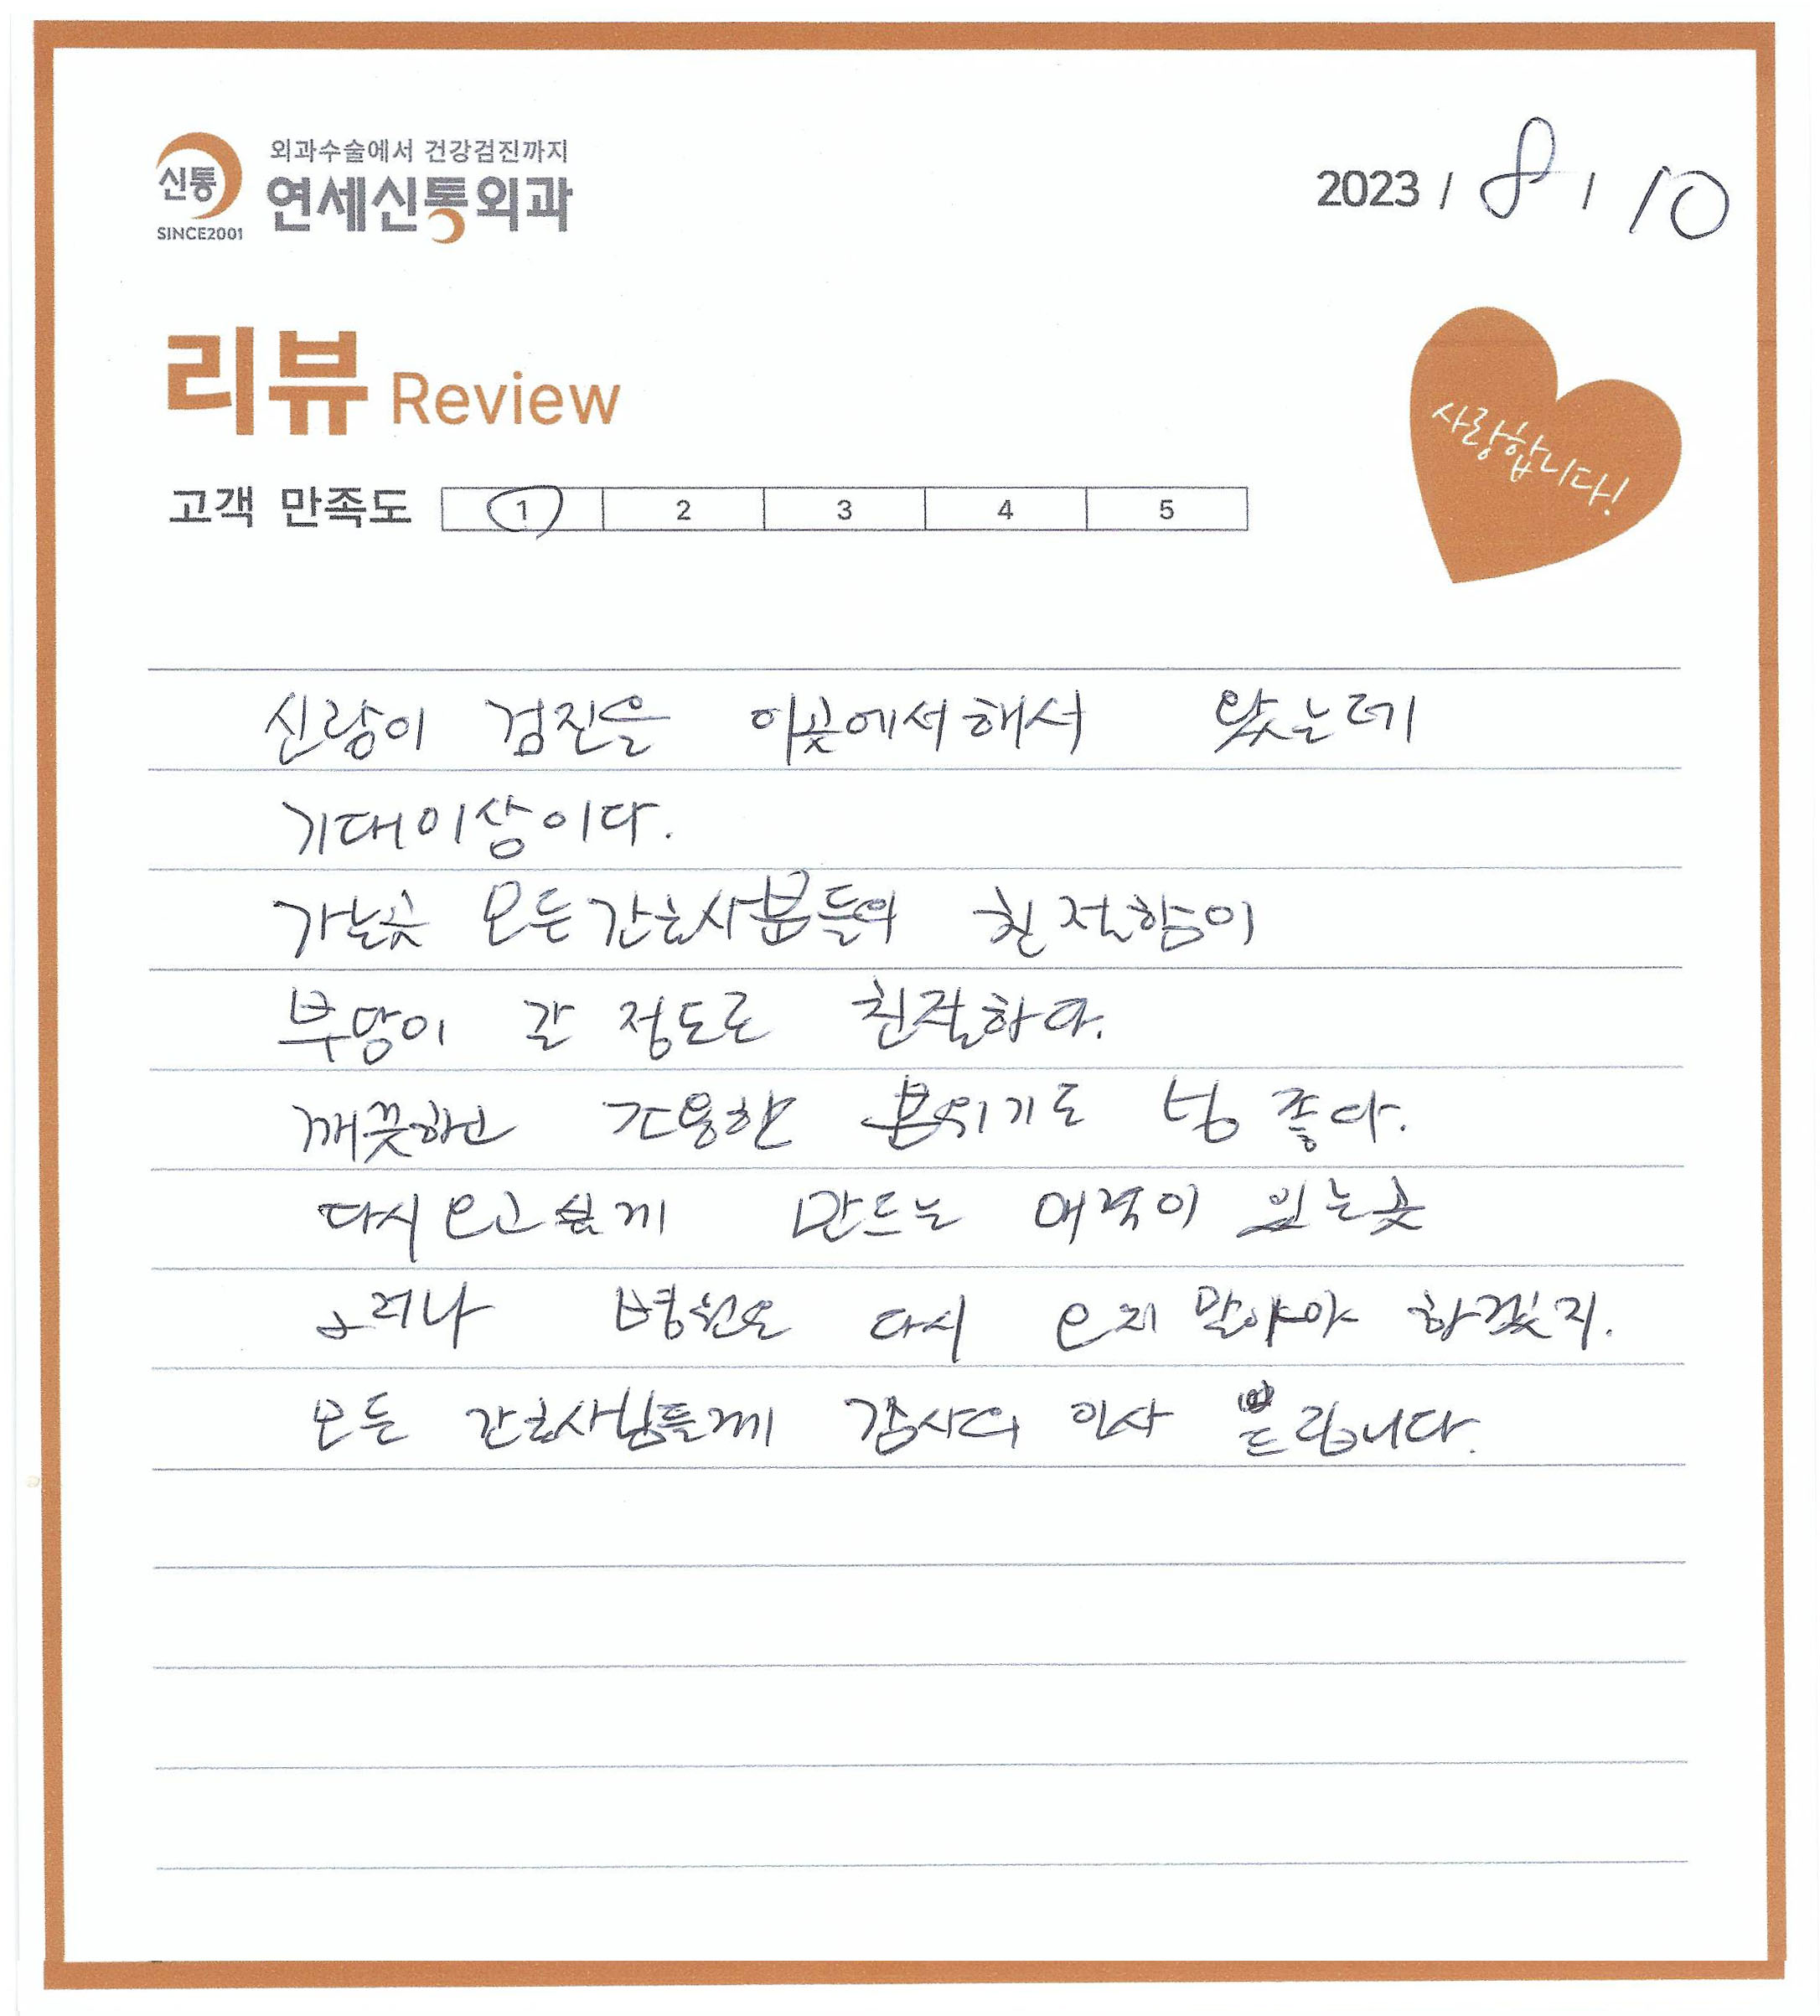 신통
SINCE2001
외과수술에서 건강검진까지
연세신통외과
2023 / 8 / 10
리뷰 Review
사랑합니다!
고객 만족도 1 2 3 4 5
신랑이 검진을 이곳에서해서 왔는데
기대이상이다.
가는곳 모든간호사분들의 친절함이
부담이 갈 정도로 친절하다.
깨끗하고 조용한 분위기도 넘 좋다.
다시오고싶게 만드는 매력이 있는곳
그러나 병원은 다시 오지말아야 하겠지.
모든 간호사님들께 감사의 인사 드립니다.